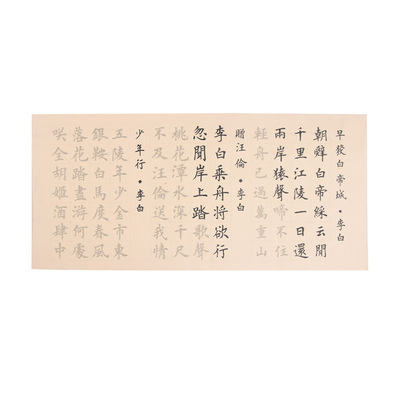 早發白帝城•李白
朝辤白帝綵云閒
千里江陵一日還
兩岸猿聲啼不住
輕舟已過萬重山
贈汪倫•李白
李白乘舟将欲行
忽聞岸上踏歌聲
桃花潭水深千尺
不及汪倫送我情
少年行•李白
五陵年少金市東
銀鞍白馬度春風
落花踏盡游何處
咲全胡姬酒肆中